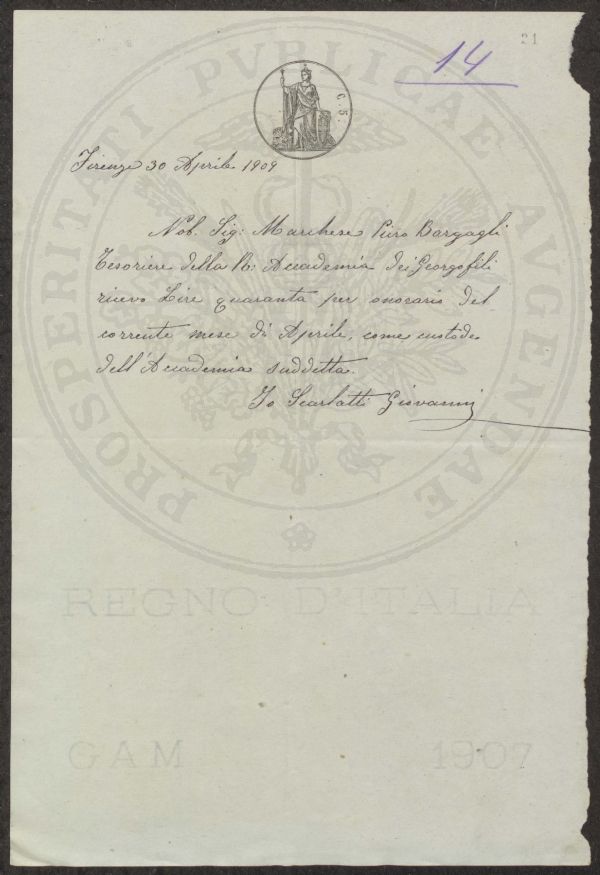 21
14
C. 5.
Firenze 30 Aprile 1909
Nob. Sig: Marchese Piero Bargagli
Tesoriere della R: Accademia dei Georgofili
ricevo Lire quaranta per onorario del
corrente mese di Aprile, come custode
dell'Accademia suddetta.
Io Scarlatti Giovanni
PROSPERITATI PVBLICAE AVGENDAE
REGNO D'ITALIA
GAM 1907